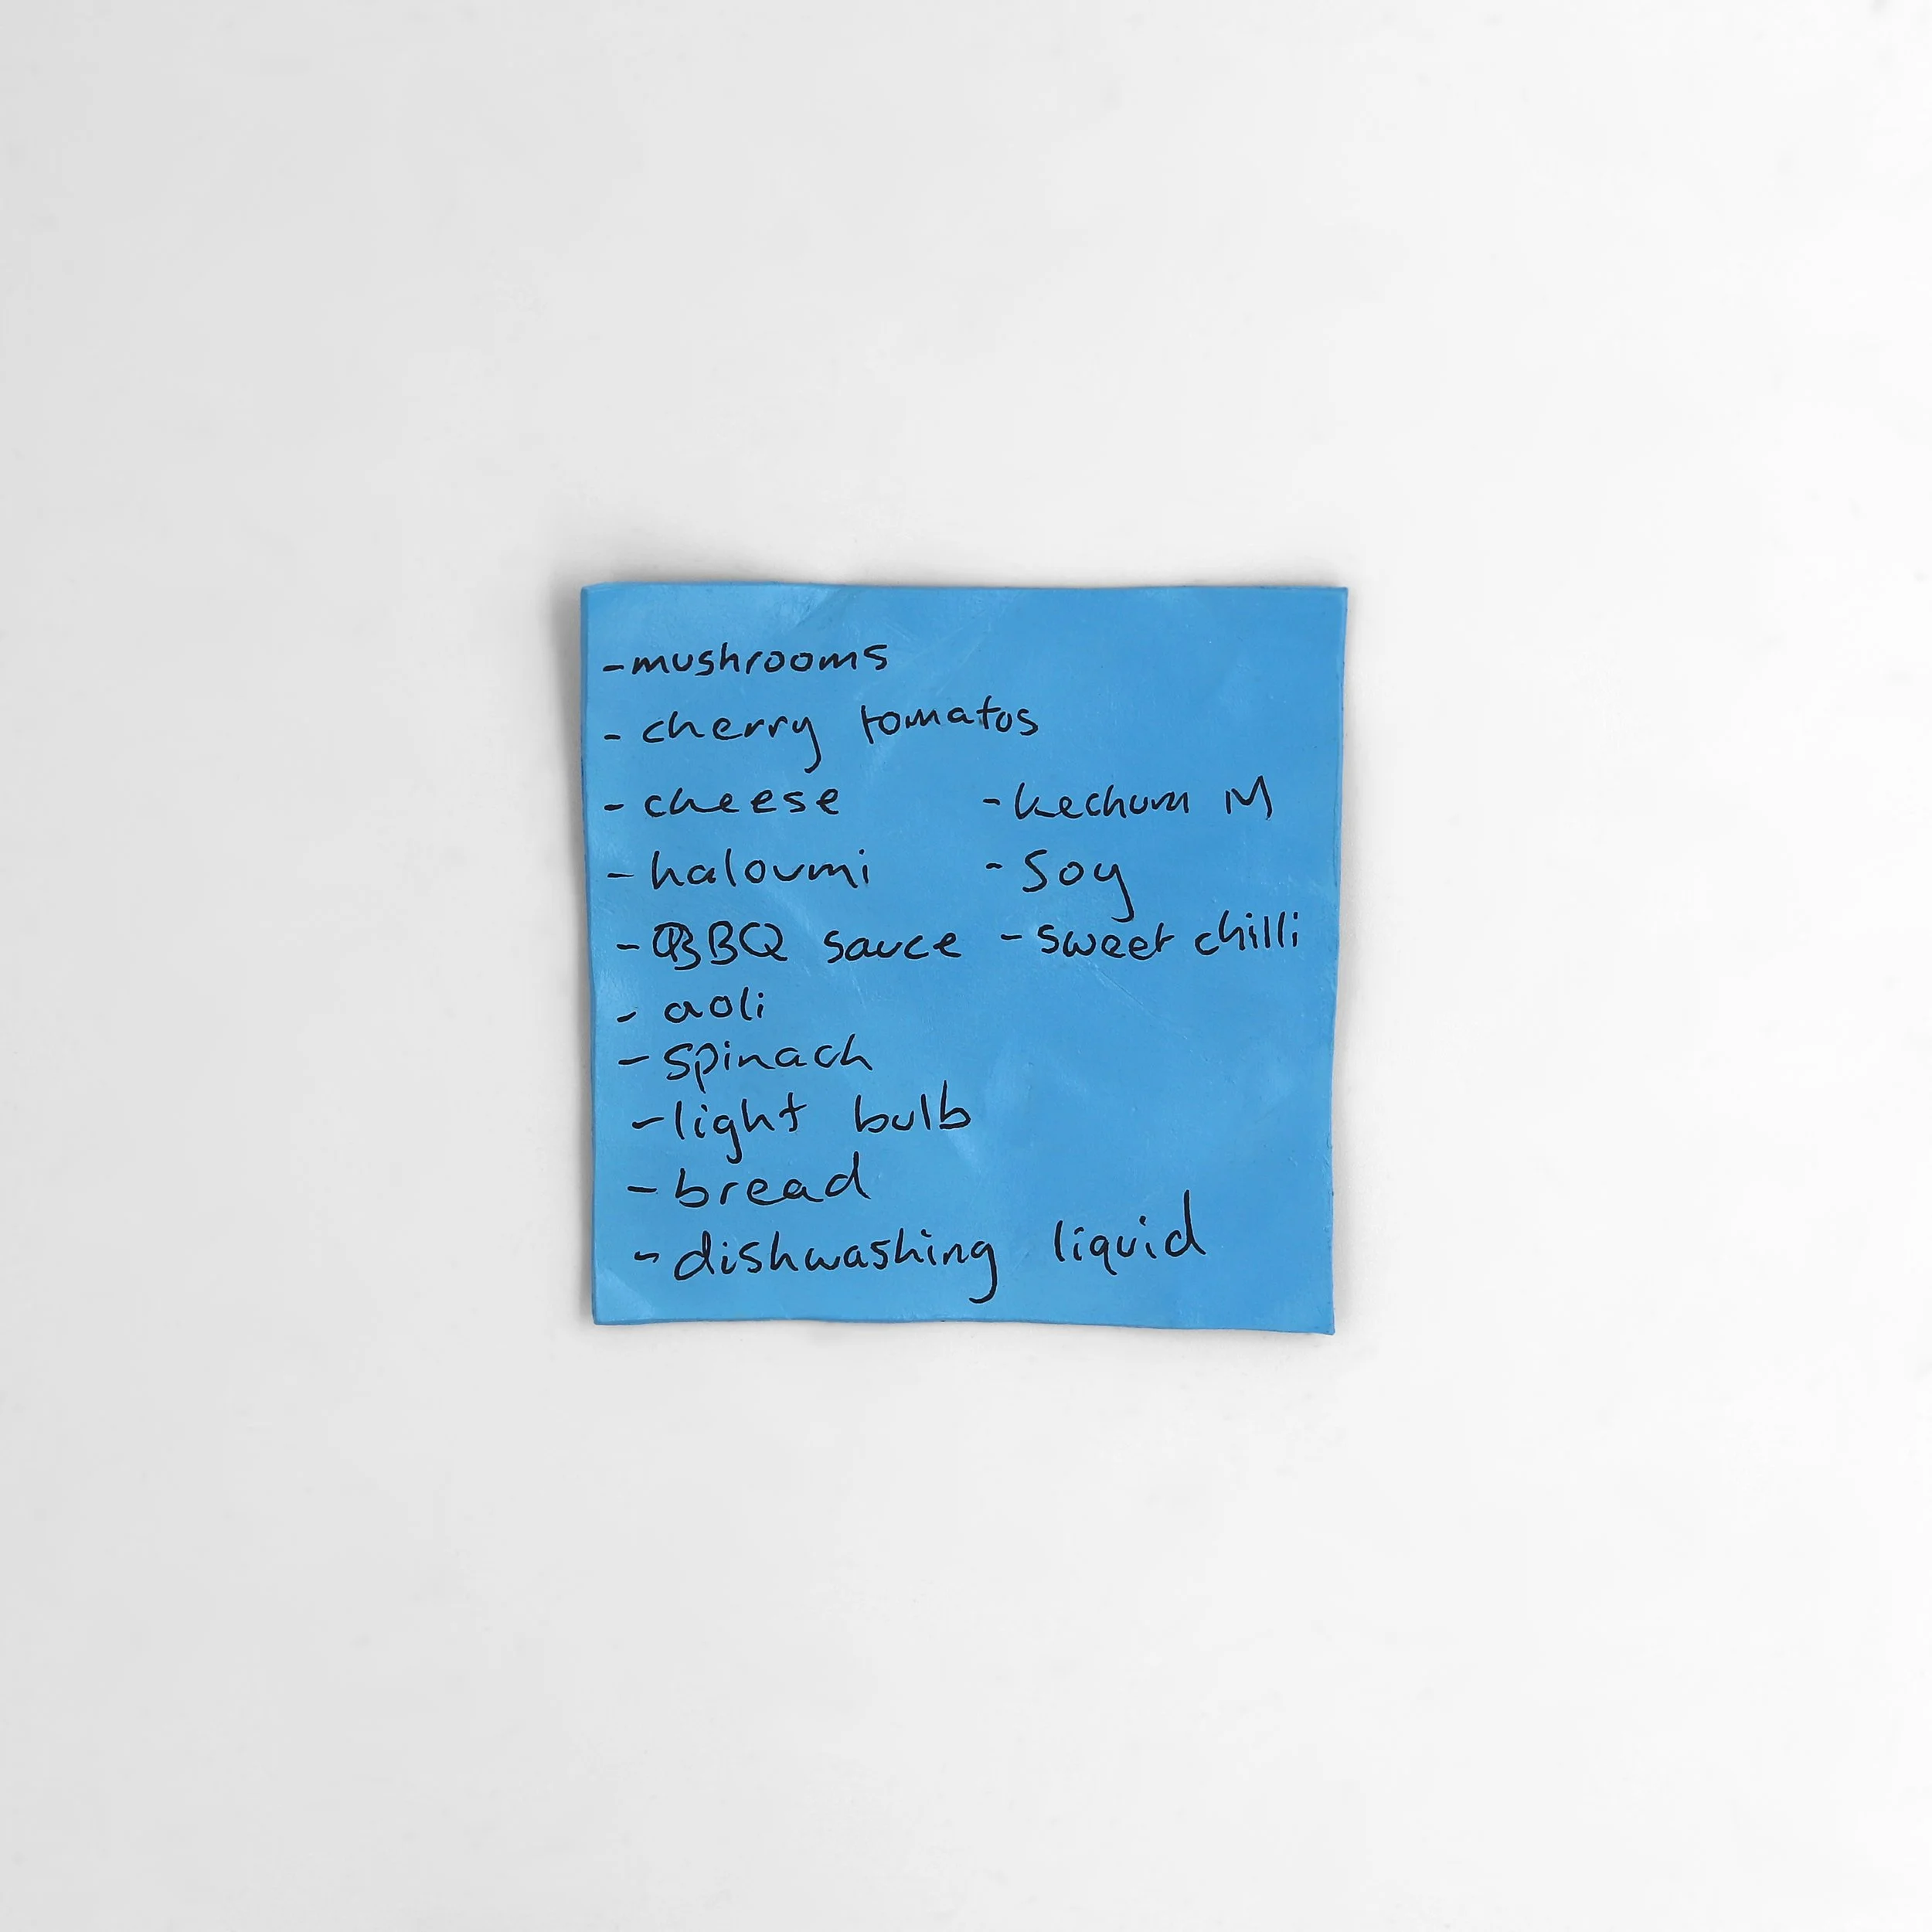 - mushrooms
- cherry tomatos
- cheese
- haloumi
- BBQ sauce
- aoli
- spinach
- light bulb
- bread
- dishwashing liquid
- kechum M
- soy
- sweet chilli